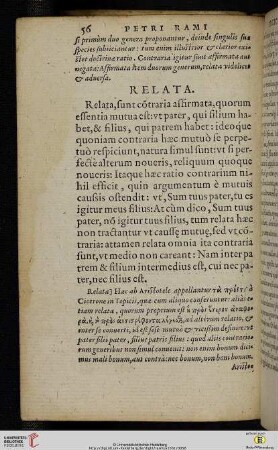 56 PETRI RAMI
si primùm duo genera proponantur, deinde singulis suæ
species subiiciantur: tum enim illustrior & clarior exi-
stet doctrinæ ratio. Contraria igitur sunt affirmata aut
negata: Affirmata item duorum generum, relata videlicet
& aduersa.
RELATA.
Relata, sunt cõtraria affirmata, quorum
essentia mutua est: vt pater, qui filium ha-
bet, & filius, qui patrem habet: ideoque
quoniam contraria hæc mutuò se perpe-
tuò respiciunt, natura simul sunt: vt si per-
fectè alterum noueris, reliquum quoque
noueris: Itaque hæc ratio contrarium ni-
hil efficit, quin argumentum è mutuis
caussis ostendit: vt, Sum tuus pater, tu es
igitur meus filius: At cùm dico, Sum tuus
pater, nõ igitur tuus filius, tum relata hæc
non tractantur vt caussę mutuę, sed vt cõ-
traria: attamen relata omnia ita contraria
sunt, vt medio non careant: Nam inter pa
trem & filium intermedius est, cui nec pa-
ter, nec filius est.
Relata] Hæc ab Aristotele appellantur τὰ πρός τι à
Cicerone in Topicis, quæ cum aliquo conferuntur: aliàs e-
tiam relata, quorum proprium est
ad alterum referri, &
inter se conuerti, vt est sese mutuò & vicissim definire: vt
pater filij pater, filius patris filius: quod aliis contrario-
rum generibus non simul conuenit: non enim bonum dici-
mus mali bonum, aut contrà: nec bonum, non boni bonum.
Aristo-
UNIVERSITÄTS-
BIBLIOTHEK
HEIDELBERG
© Universitätsbibliothek Heidelberg